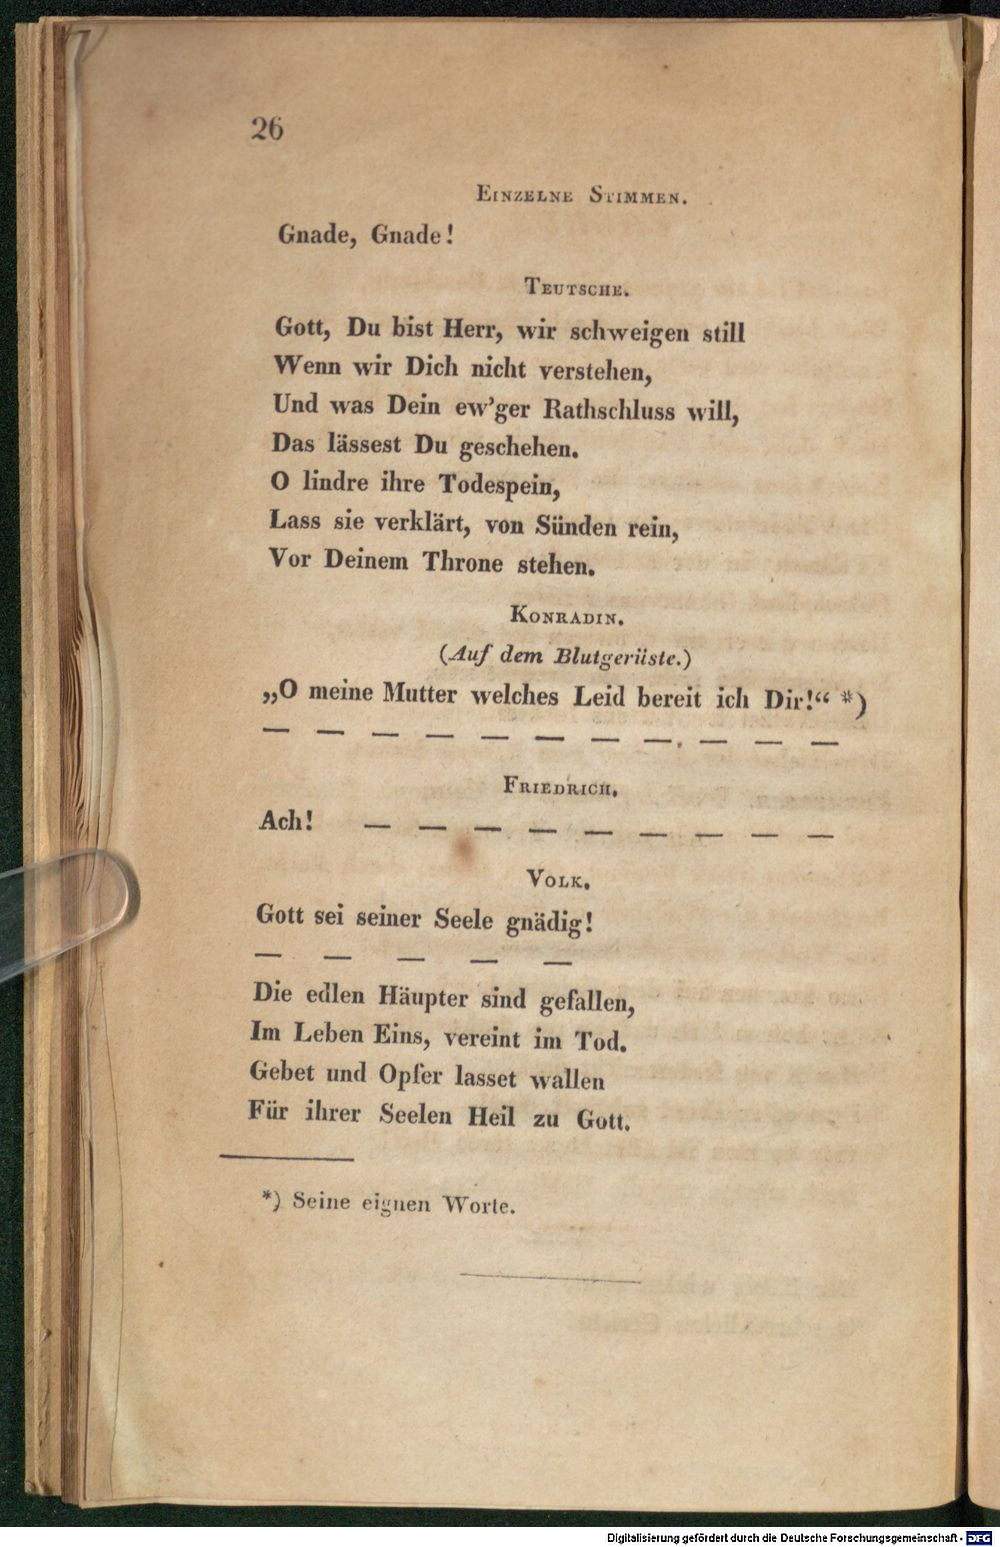 26
Einzelne Stimmen.
Gnade, Gnade!
Teutsche.
Gott, Du bist Herr, wir schweigen still
Wenn wir Dich nicht verstehen,
Und was Dein ew’ger Rathschluss will,
Das lässest Du geschehen.
O lindre ihre Todespein,
Lass sie verklärt, von Sünden rein,
Vor Deinem Throne stehen.
Konradin.
(Auf dem Blutgerüste.)
„O meine Mutter welches Leid bereit ich Dir!“ *)
— — — — — — — — — — —
Friedrich.
Ach! — — — — — — — — —
Volk.
Gott sei seiner Seele gnädig!
— — — — —
Die edlen Häupter sind gefallen,
Im Leben Eins, vereint im Tod.
Gebet und Opfer lasset wallen
Für ihrer Seelen Heil zu Gott.
*) Seine eignen Worte.
Digitalisierung gefördert durch die Deutsche Forschungsgemeinschaft - DFG